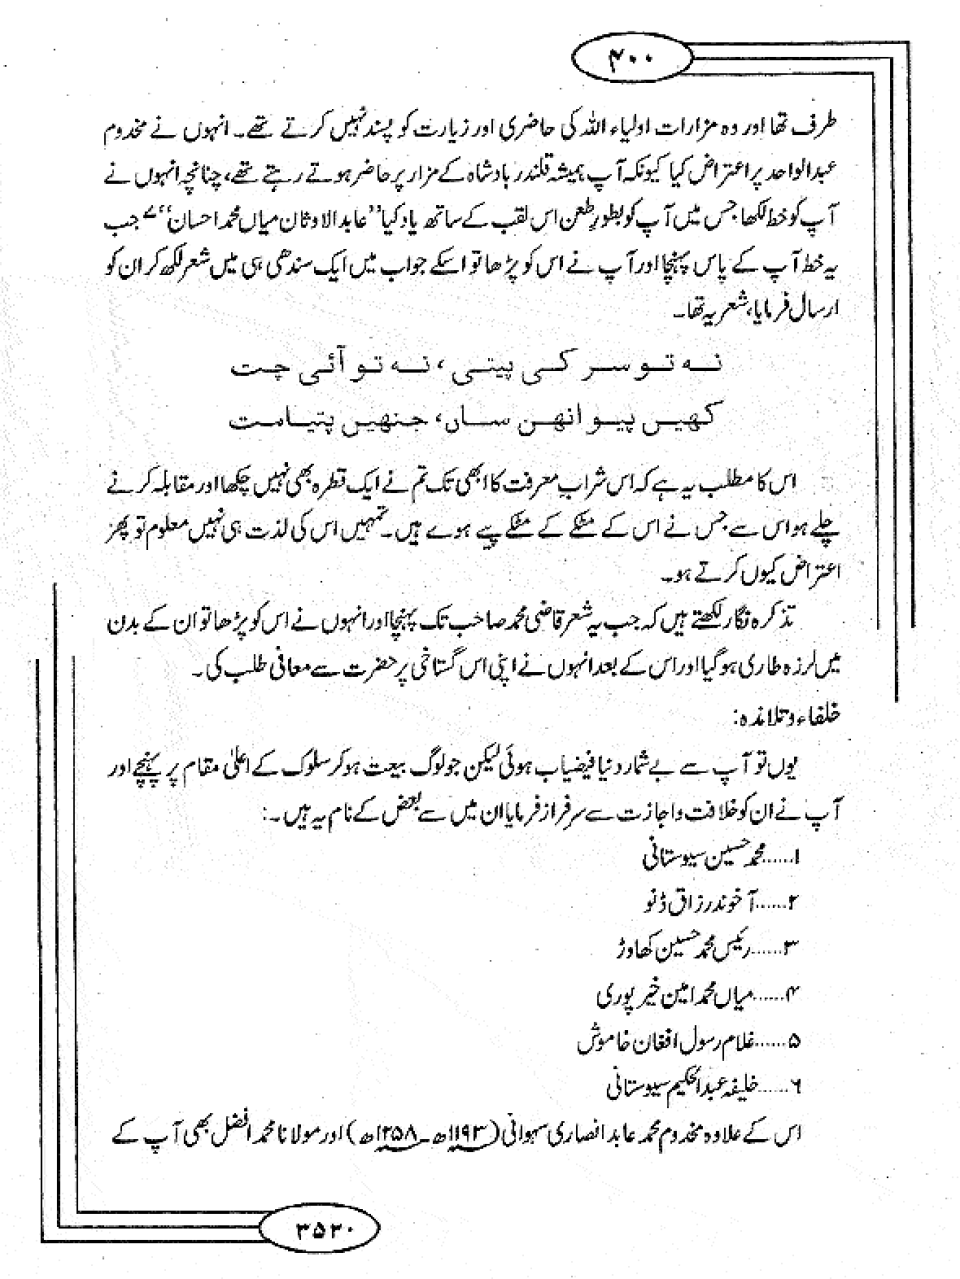 ۴۰۰
طرف تھا اور وہ مزارات اولیاء اللہ کی حاضری اور زیارت کو پسند نہیں کرتے تھے۔ انہوں نے مخدوم
عبدالواحد پر اعتراض کیا کیونکہ آپ ہمیشہ قلندر بادشاہ کے مزار پر حاضر ہوتے رہتے تھے، چنانچہ انہوں نے
آپ کو خط لکھا جس میں آپ کو بطور طعن اس لقب کے ساتھ یاد کیا ”عابد الاوثان میاں محمد احسان“ ے جب
یہ خط آپ کے پاس پہنچا اور آپ نے اس کو پڑھا تو اسکے جواب میں ایک سندھی ہی میں شعر لکھ کر ان کو
ارسال فرمایا، شعر یہ تھا۔
نہ تو سر کی پیتی، نہ تو آئی چت
کھیں پیو انھن ساں، جنھیں پتیامت
اس کا مطلب یہ ہے کہ اس شراب معرفت کا ابھی تک تم نے ایک قطرہ بھی نہیں چکھا اور مقابلہ کرنے
چلے ہو اس سے جس نے اس کے مٹکے کے مٹکے پیے ہوے ہیں۔ تمہیں اس کی لذت ہی نہیں معلوم تو پھر
اعتراض کیوں کرتے ہو۔
تذکرہ نگار لکھتے ہیں کہ جب یہ شعر قاضی محمد صاحب تک پہنچا اور انہوں نے اس کو پڑھا تو ان کے بدن
میں لرزہ طاری ہو گیا اور اس کے بعد انہوں نے اپنی اس گستاخی پر حضرت سے معافی طلب کی۔
خلفاء و تلامذہ:
یوں تو آپ سے بے شمار دنیا فیضیاب ہوئی لیکن جو لوگ بیعت ہو کر سلوک کے اعلیٰ مقام پر پہنچے اور
آپ نے ان کو خلافت و اجازت سے سرفراز فرمایا ان میں سے بعض کے نام یہ ہیں۔:
۱......محمد حسین سیوستانی
۲......آخوند رزاق ڈنو
۳......رئیس محمد حسین کھاوڑ
۴......میاں محمد امین خیر پوری
۵......غلام رسول افغان خاموش
۶......خلیفہ عبدالحکیم سیوستانی
اس کے علاوہ مخدوم محمد عابد انصاری سہوانی (۱۱۹۳ھ۔۱۲۵۸ھ) اور مولانا محمد افضل بھی آپ کے
۳۵۳۰